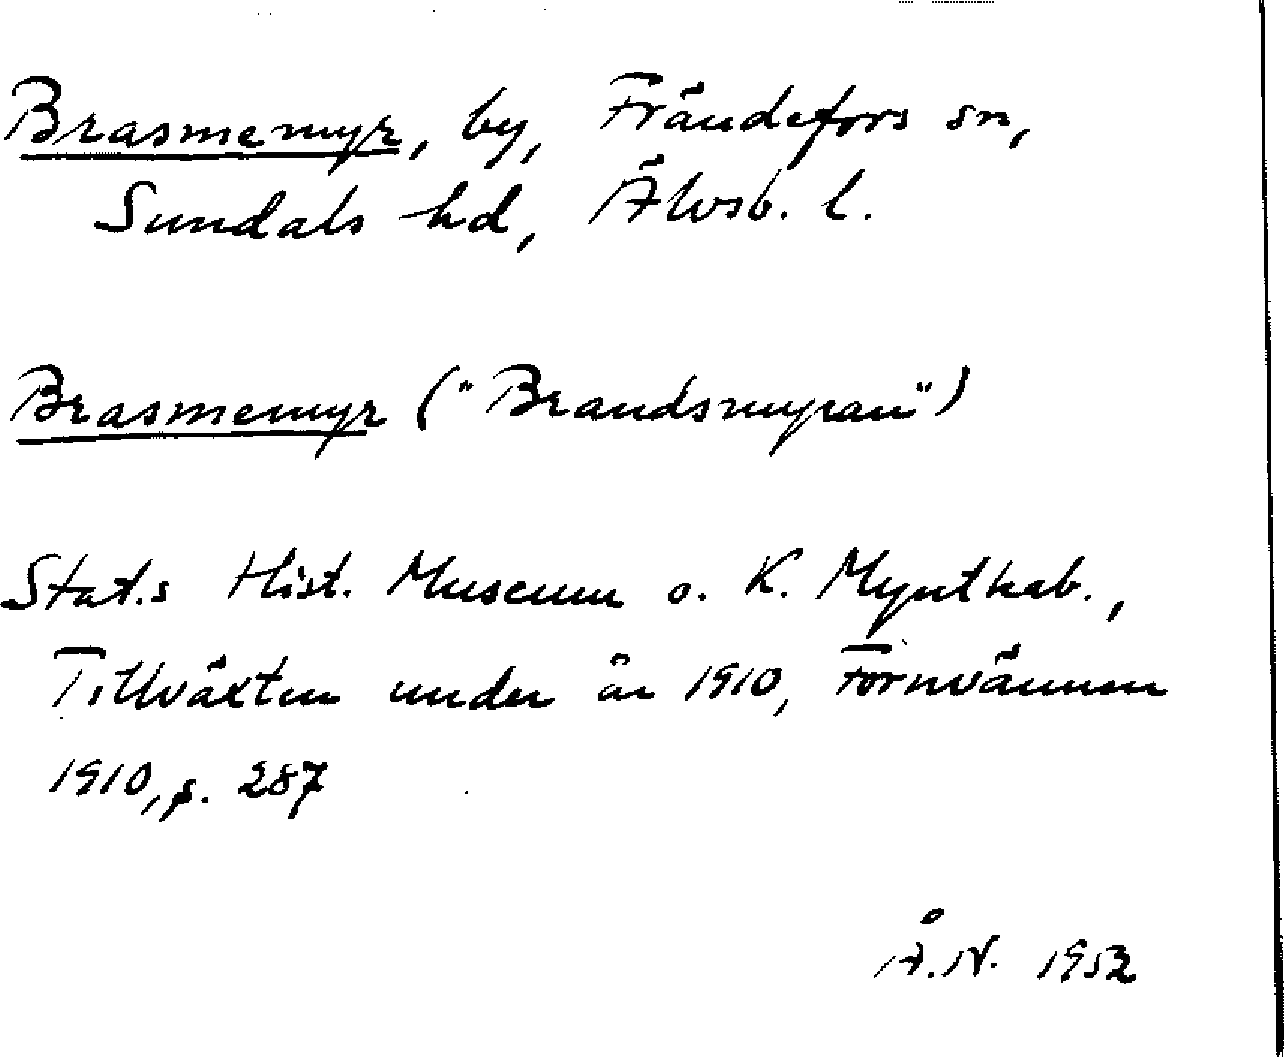 Brasmemyr, by, Frändefors sn,
Sundals hd, Älvsb. l.
Brasmemyr ("Brandsmyran")
Stat.s Hist. Museum o. K. Myntkab.,
Tillväxten under år 1910, Fornvännen
1910, p. 287
Å.N. 1952